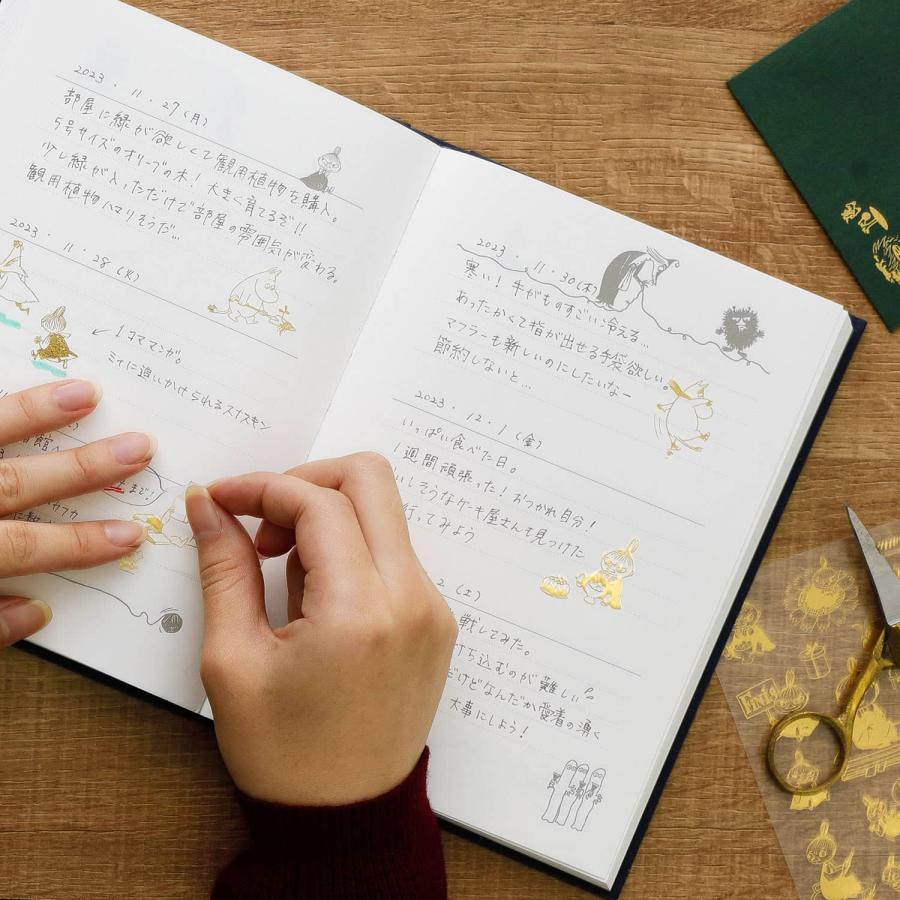 2023.11.27(月)
部屋に緑が欲しくて観用植物を購入。
5号サイズのオリーブの木!大きく育てるぞ!!
少し緑が入っただけで部屋の雰囲気が変わる。
観用植物ハマりそうだ…
2023.11.28(火)
←1コママンガ。
ミイに追いかけられるスナスキン
まで!
2023.11.30(木)
寒い!手がものすごい冷える…
あったかくて指が出せる手袋欲しい。
マフラーも新しいのにしたいなー
節約しないと…
2023.12.1(金)
いっぱい食べた日。
1週間頑張った!おつかれ自分!
いしそうなケーキ屋さんも見つけた
行ってみよう
2(土)
戦してみた。
ち込むのが難しい
だけどなんだか愛着の湧く
大事にしよう!